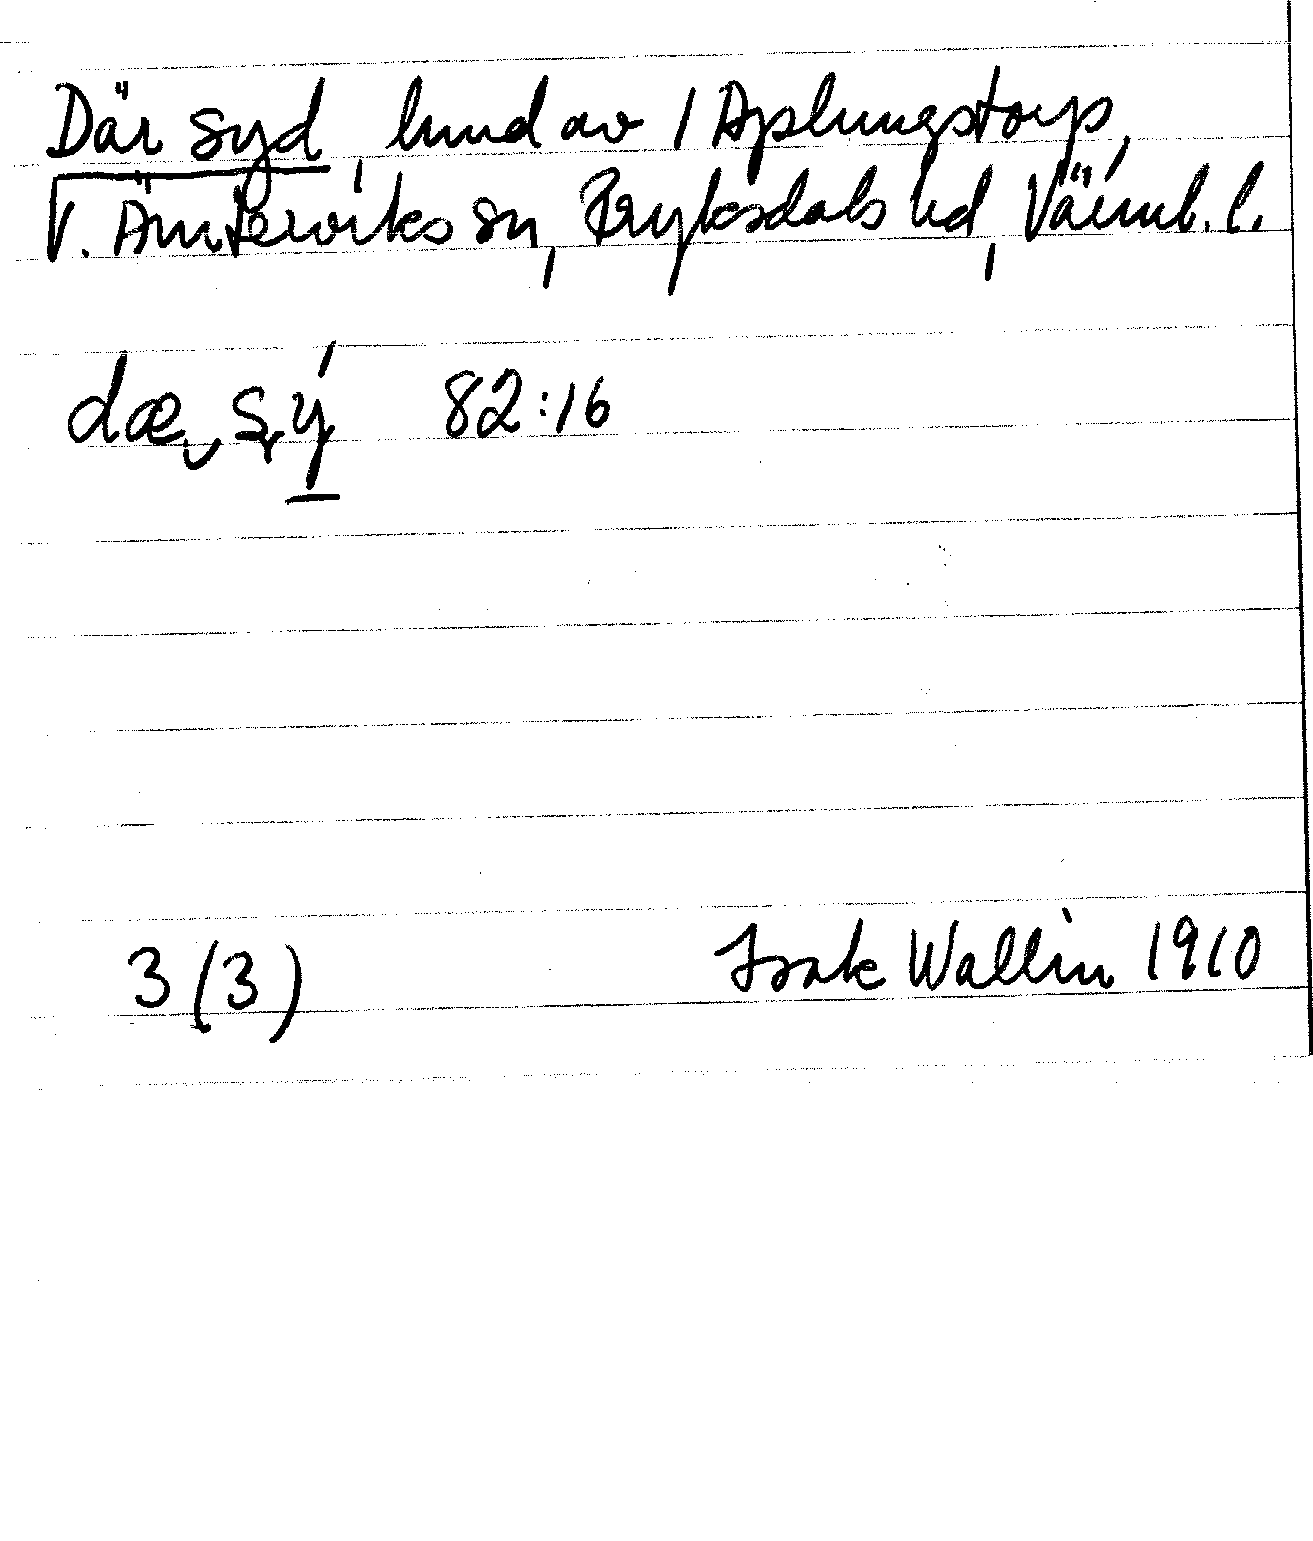 Där syd, lmnd av 1 Aplungstorp,
V. Ämterviks sn, Fryksdals hd, Värml. l.
82:16
3 (3) Isak Wallin 1910